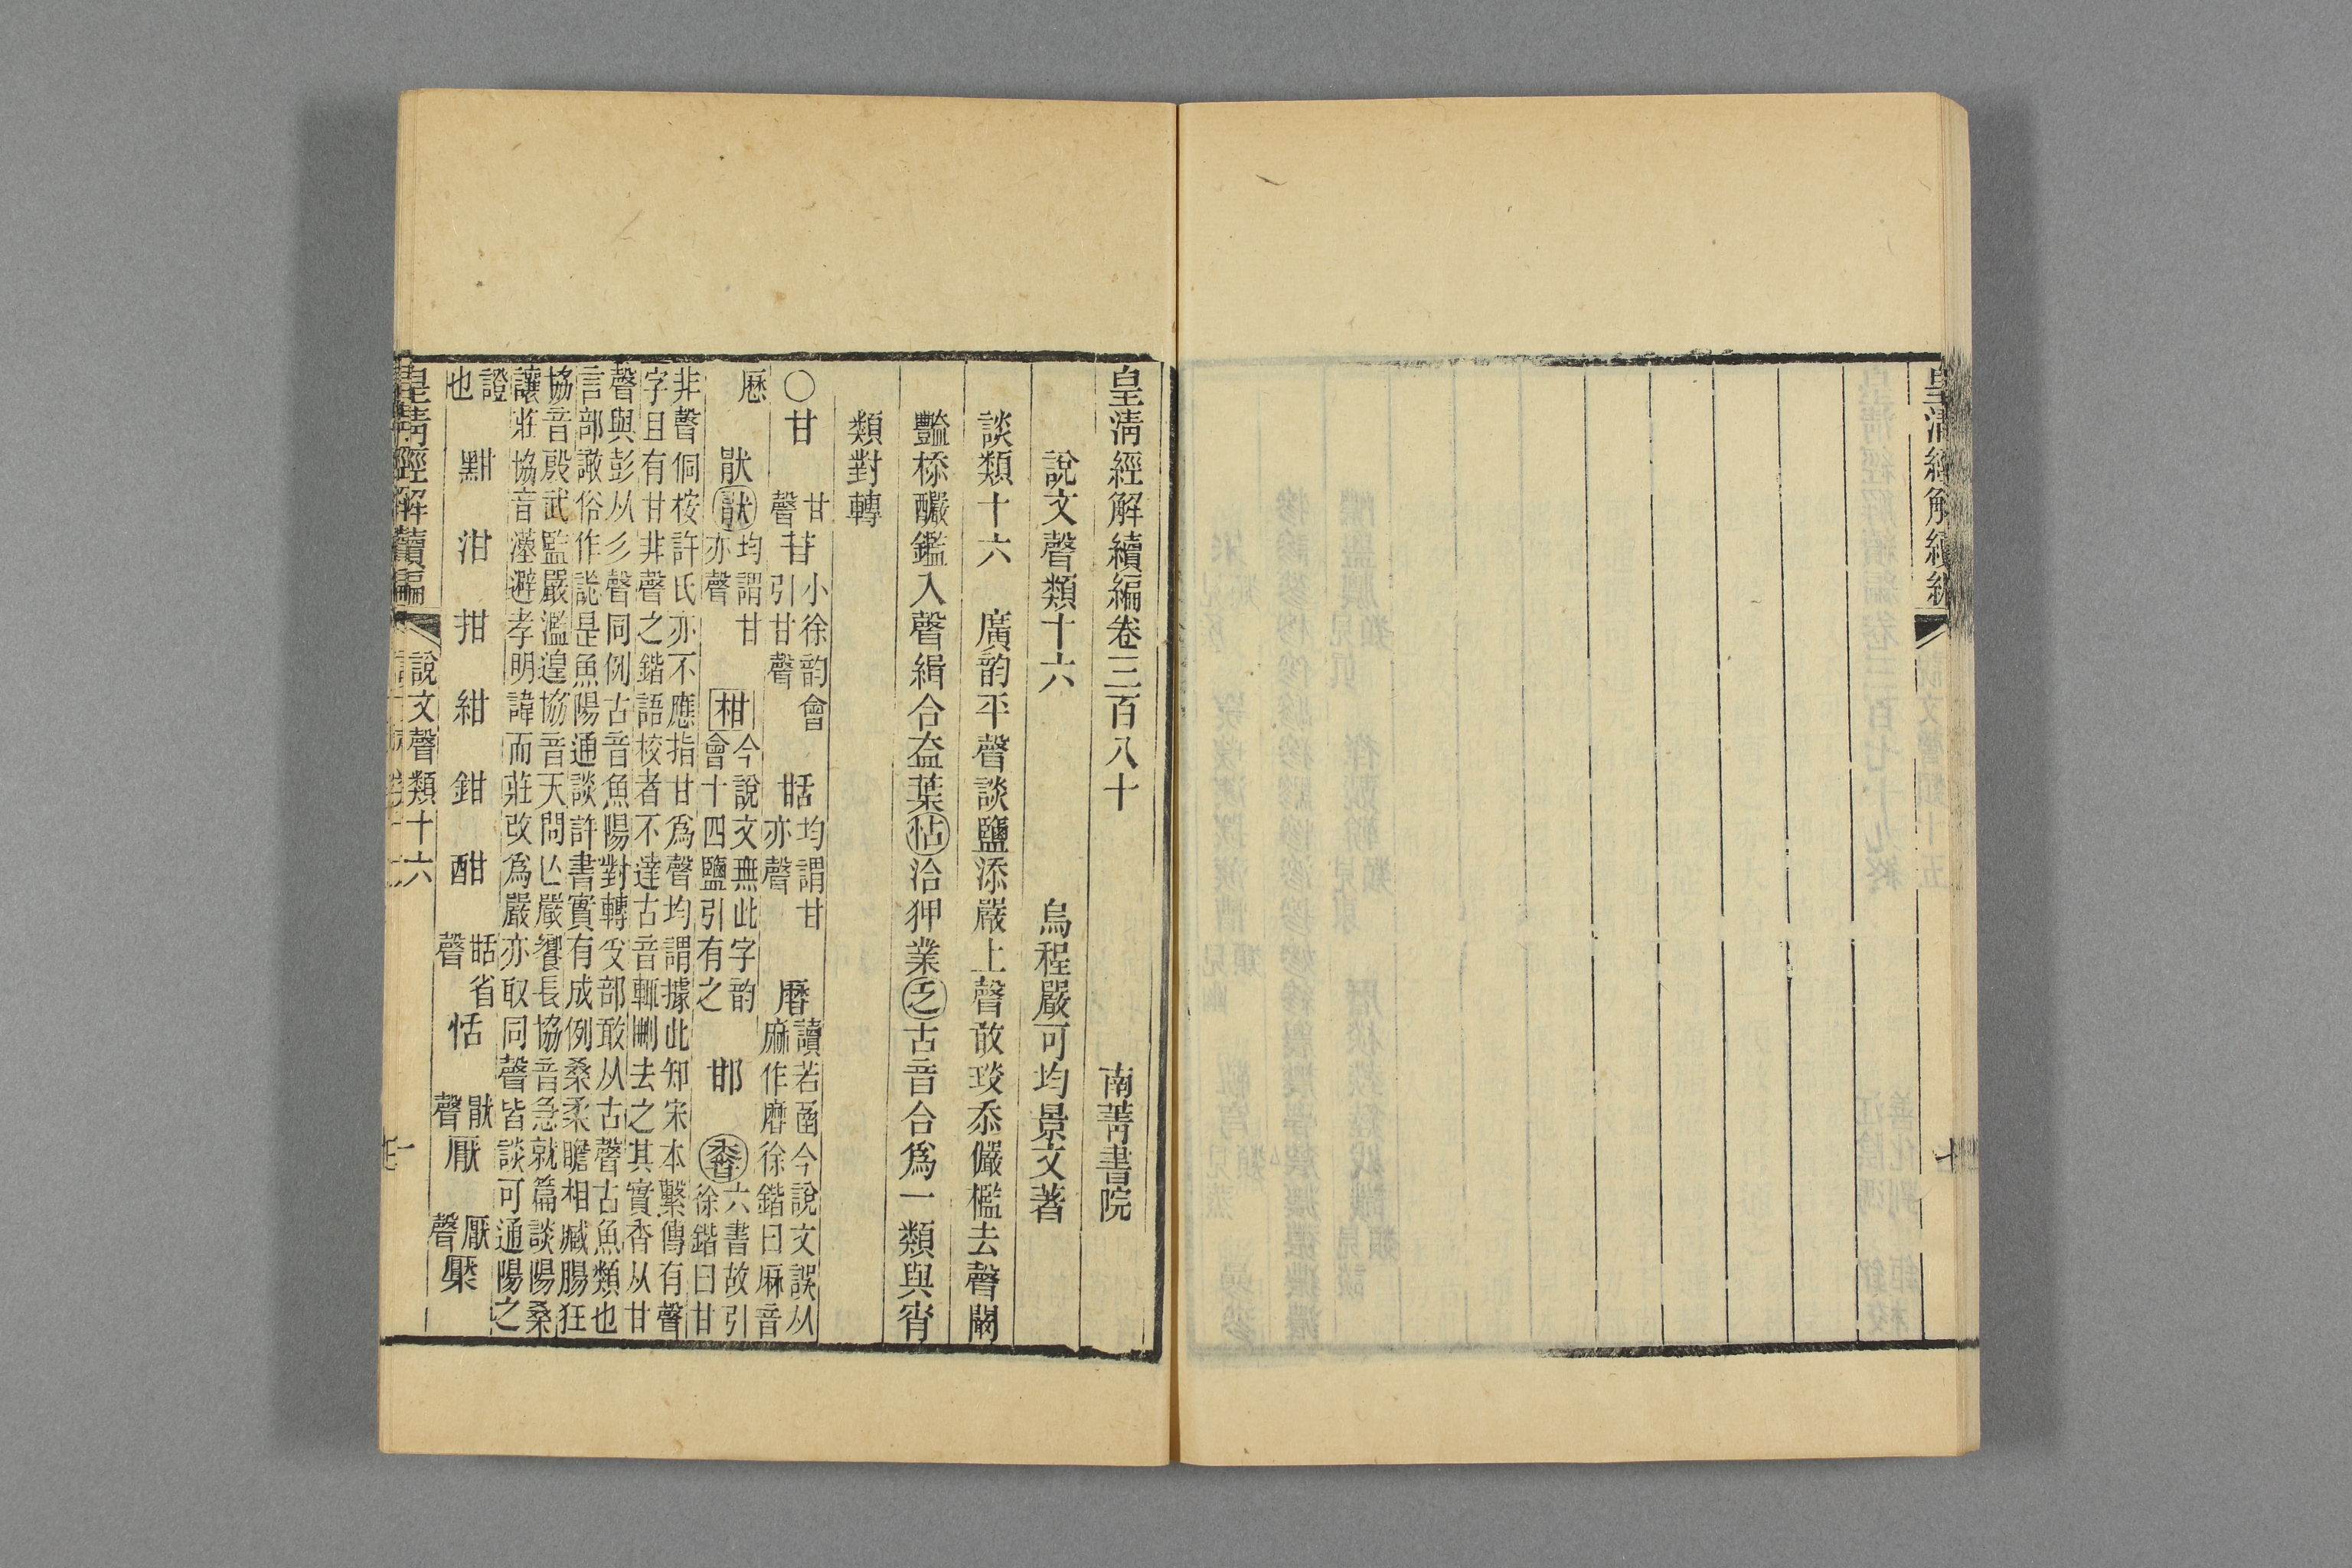 皇清經解續編
皇清經解續編卷三百八十 南菁書院
說文聲類十六 烏程嚴可均景文著
談類十六 廣韵平聲談鹽添嚴上聲敢琰忝儼檻去聲闞
豔㮇釅鑑入聲緝合盍葉怗洽狎業乏古音合爲一類與宵
類對轉
○甘 甘聲 小徐韵會引甘聲 甛 均謂甘亦聲 讀若函今說文誤从麻作磿徐鍇曰麻音
厤 猒 均謂甘亦聲 柑 今說文無此字韵會十四鹽引有之 邯 六書故引徐鍇曰甘
非聲侗桉許氏亦不應指甘爲聲均謂據此知宋本繫傳有聲
字且有甘非聲之鍇語校者不達古音輒刪去之其實香从甘
聲與彭从彡聲同例古音魚陽對轉𠬪部敢从古聲古魚類也
言部譀俗作䛞是魚陽通談許書實有成例桑柔瞻相臧腸狂
協音殷武監嚴濫遑協音天問亾嚴饗長協音急就篇談陽桑
讓莊協音漢避孝明諱而莊改爲嚴亦取同聲皆談可通陽之
證也 黚 泔 拑 紺 鉗 酣 甛省聲 恬 猒聲 厭 厭聲 檿
皇清經解續編 說文聲類十六